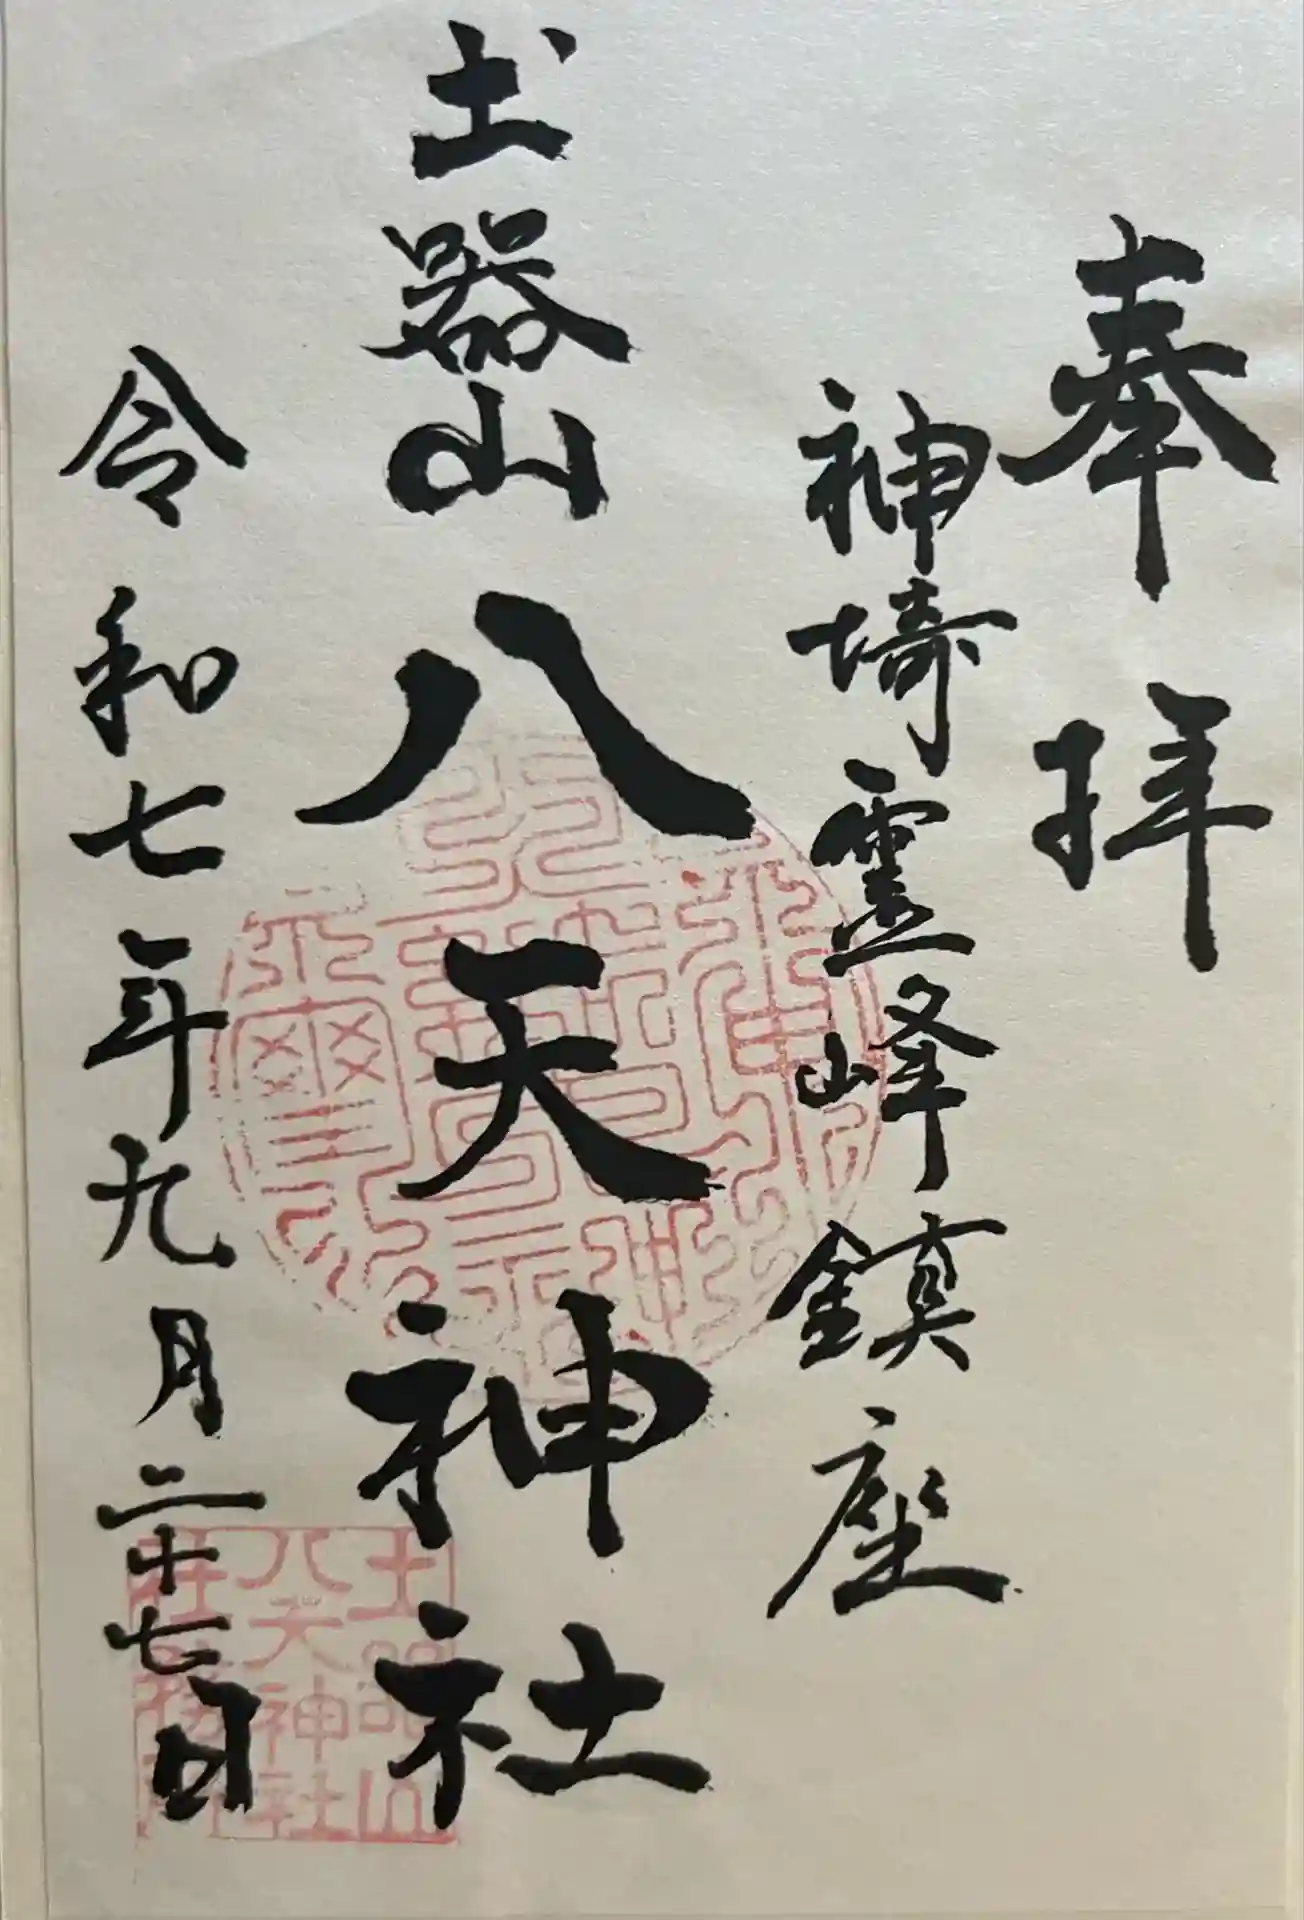 奉拝
神埼霊峰鎮座
土器山八天神社
令和七年九月二十七日
土器山
八天神社
社務所